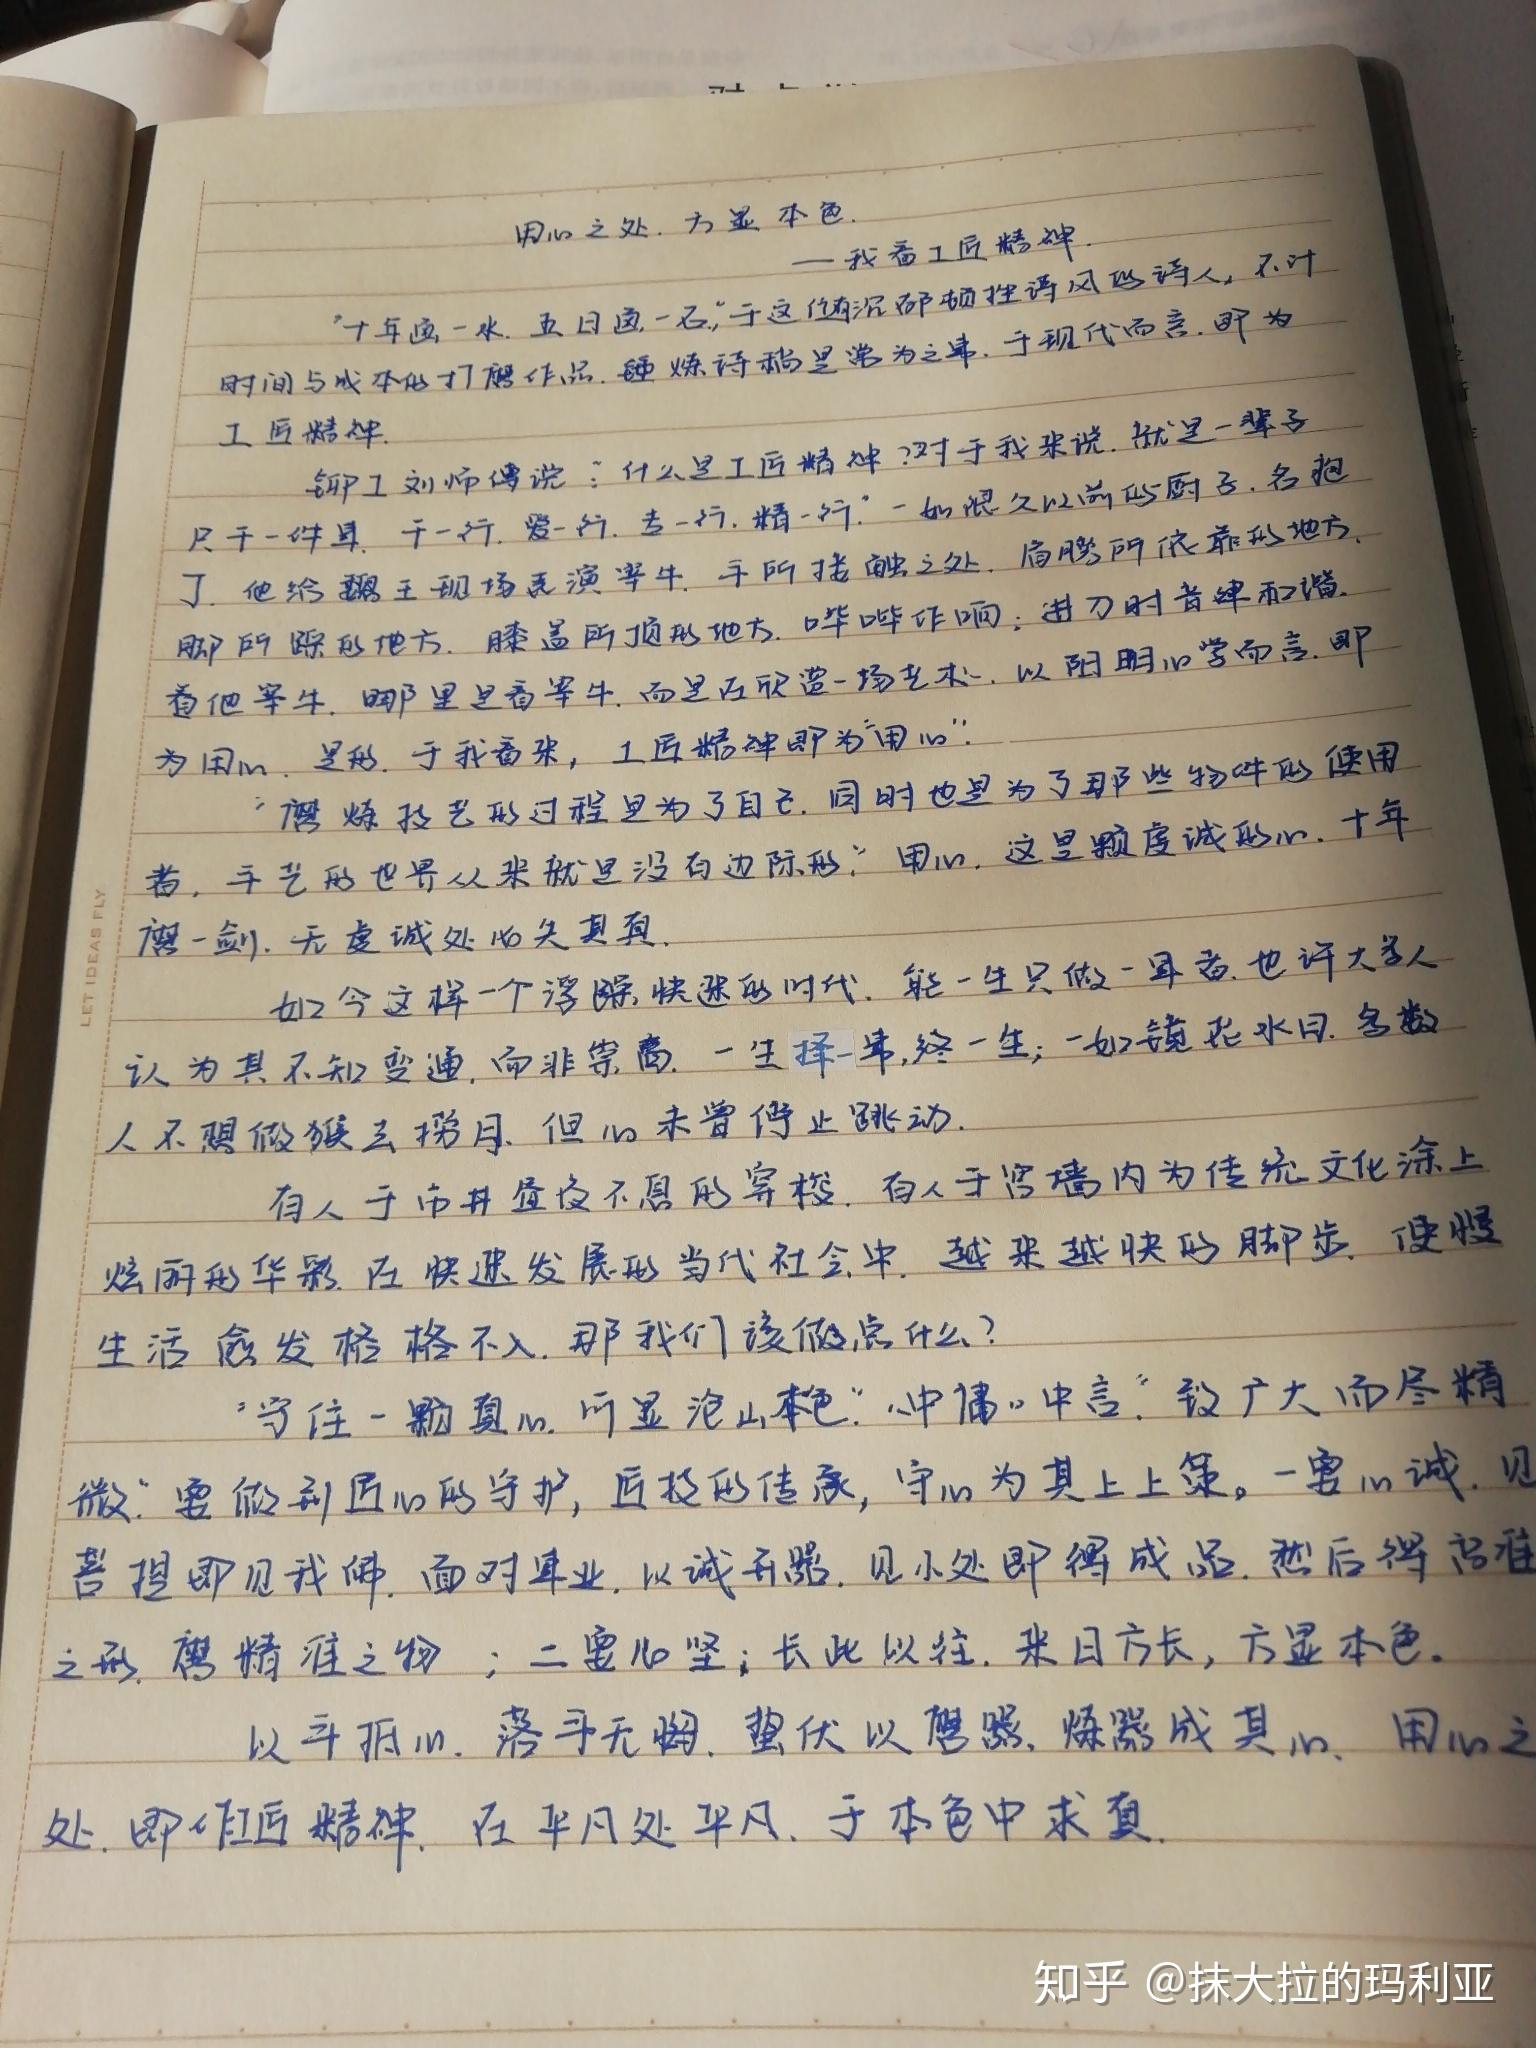 用心之处.方显本色.
—我看工匠精神.
"十年画一水.五日画一石,"于这位有沉郁顿挫诗风的诗人,不计
时间与成本的打磨作品.锤炼诗稿是常为之事.于现代而言.即为
工匠精神.
铆工刘师傅说:"什么是工匠精神?对于我来说.就是一辈子
只干一件事.干一行.爱一行.专一行.精一行."一如很久以前的厨子.名庖
丁.他给魏王现场表演宰牛.手所接触之处.肩膀所依靠的地方.
脚所踩的地方.膝盖所顶的地方.哗哗作响;进刀时音律和谐.
看他宰牛.哪里是看宰牛.而是在欣赏一场艺术.以阳明心学而言.即
为用心.是的.于我看来,工匠精神即为"用心".
"磨炼技艺的过程是为了自己.同时也是为了那些物件的使用
者.手艺的世界从来就是没有边际的."用心.这是颗虔诚的心.十年
磨一剑.无虔诚处必失其真.
如今这样一个浮躁.快速的时代.能一生只做一事者.也许大多人
认为其不知变通.而非崇高.一生择一事,终一生;一如镜花水月.多数
人不想做猴去捞月.但心未曾停止跳动.
有人于市井昼夜不息的穿梭.有人于宫墙内为传统文化涂上
炫丽的华彩.在快速发展的当代社会中.越来越快的脚步.使慢
生活愈发格格不入.那我们该做点什么?
"守住一颗真心.所显沧山本色."《中庸》中言:"致广大而尽精
微."要做到匠心的守护,匠技的传承,守心为其上上策。一要心诚.见
菩提即见我佛.面对事业.以诚开器.见小处即得成品.然后得高准
之形.磨精准之物;二要心坚;长此以往.来日方长,方显本色.
以斗抵心.落斗无悔.蛰伏以磨器.炼器成其心.用心之
处.即作工匠精神.在平凡处平凡.于本色中求真.
LET IDEAS FLY
知乎 @抹大拉的玛利亚